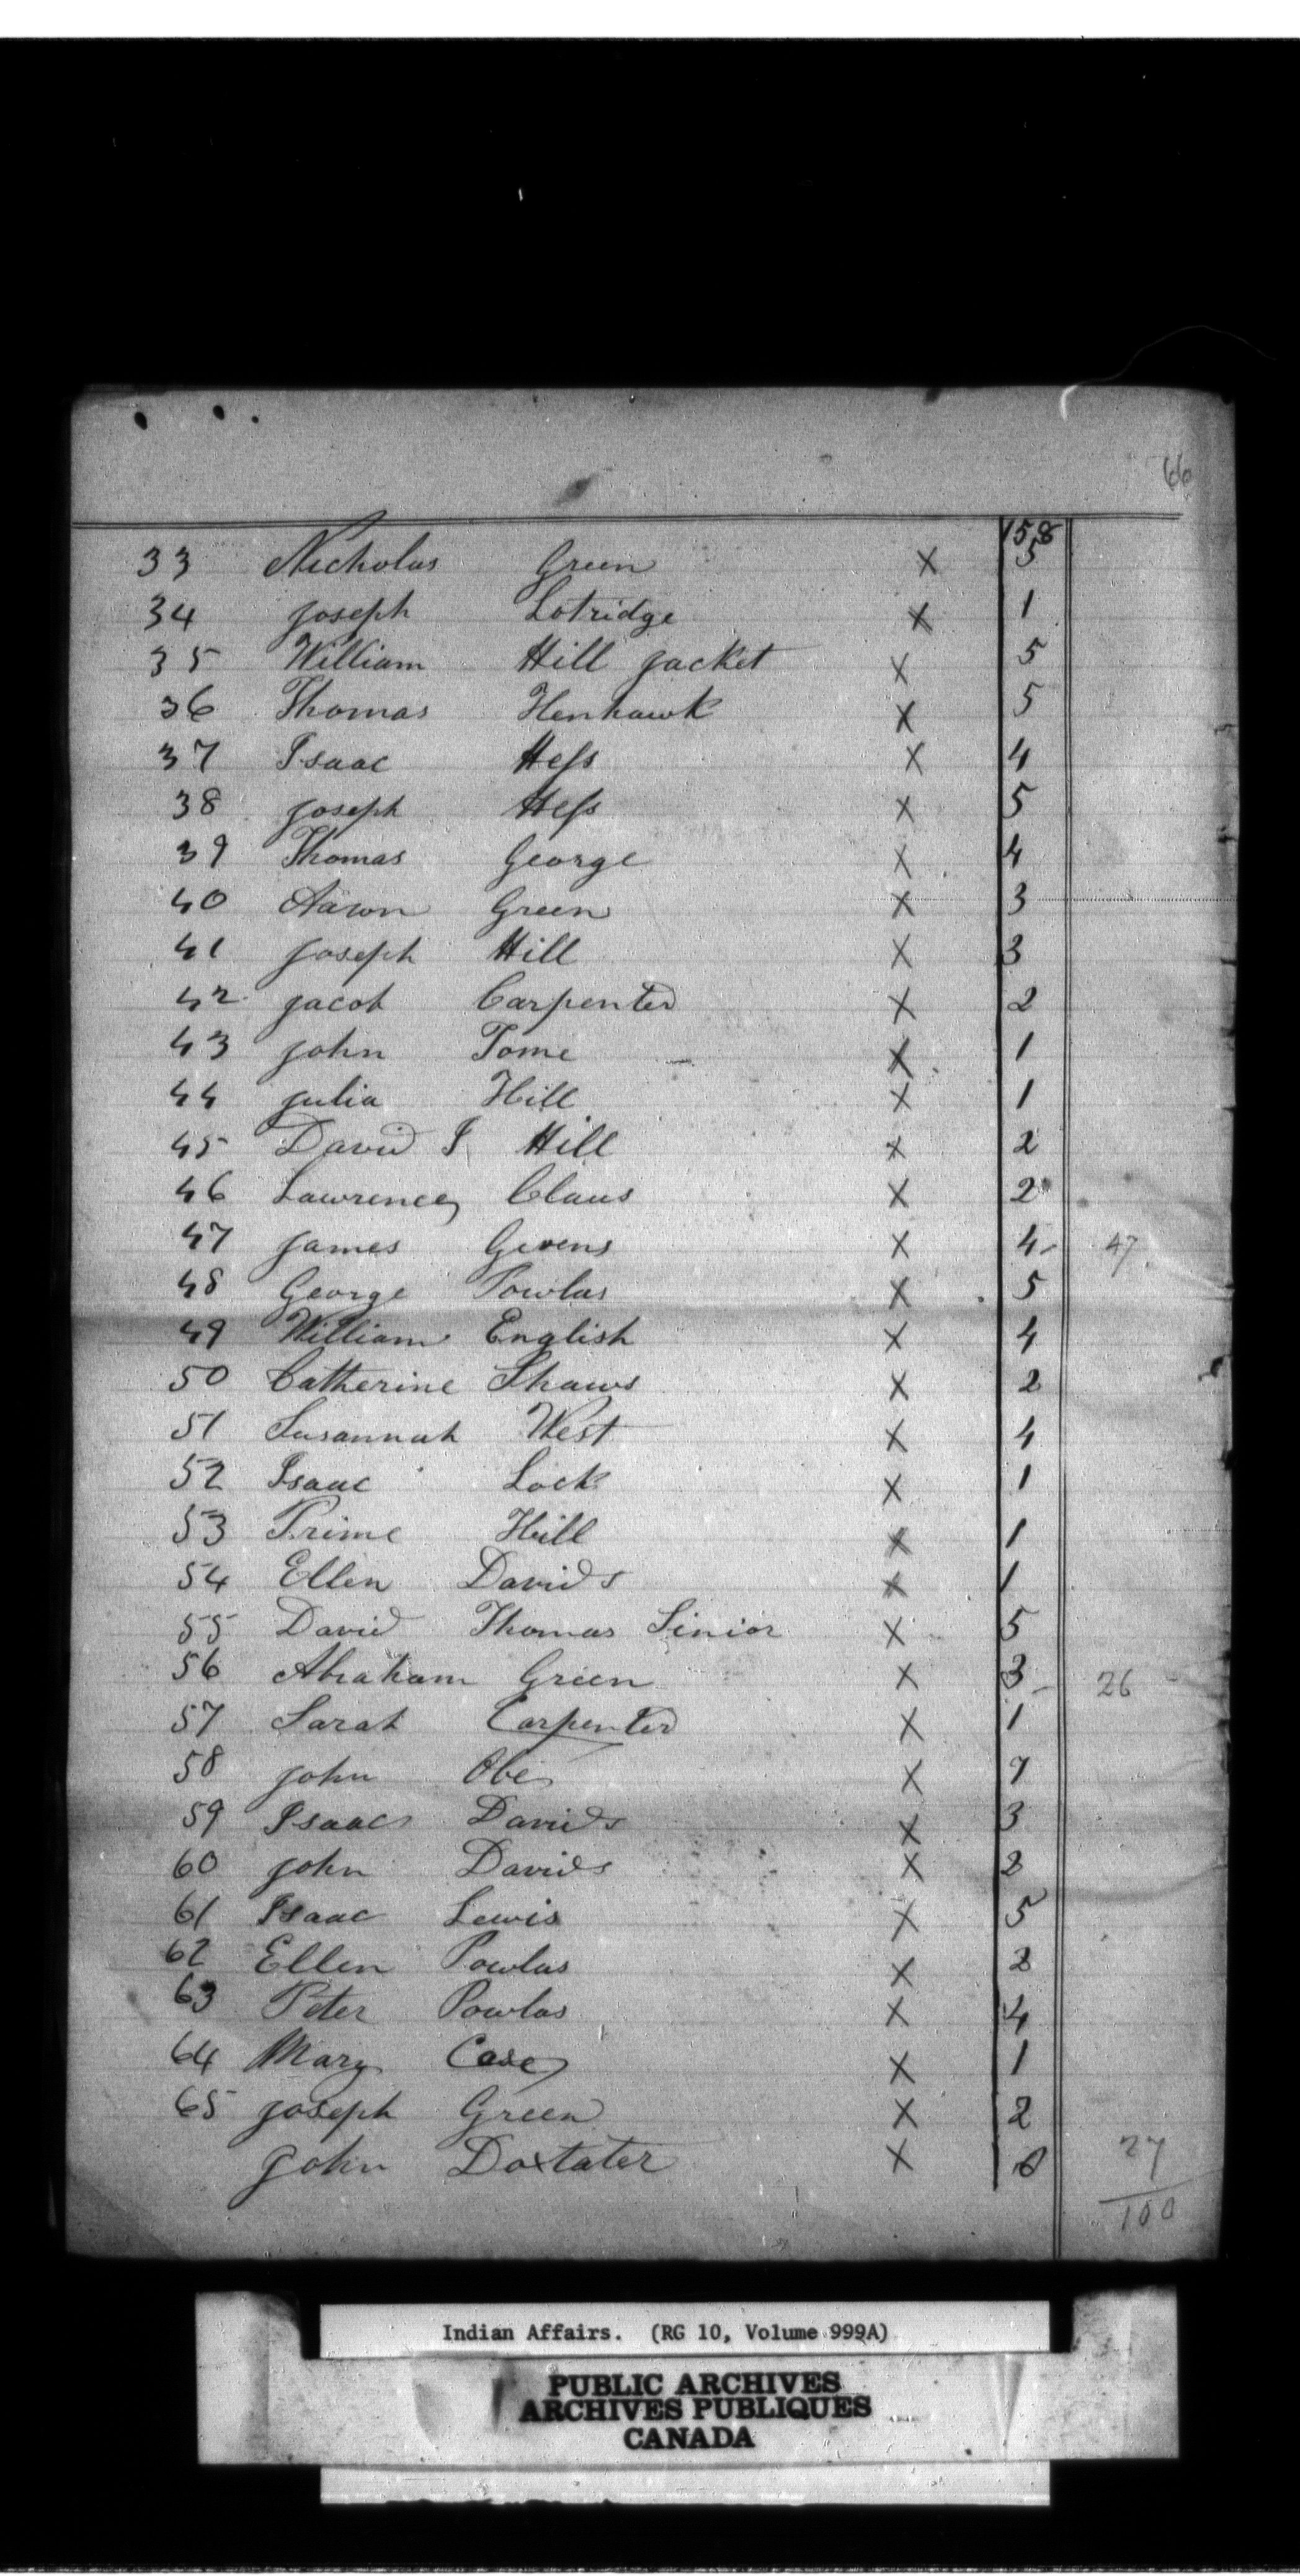 66
158
33 Nicholas Green X 5
34 Joseph Lotridge X 1
35 William Hill Jacket X 5
36 Thomas Henhawk X 5
37 Isaac Hess X 4
38 Joseph Hess X 5
39 Thomas George X 4
40 Aaron Green X 3
41 Joseph Hill X 3
42 Jacob Carpenter X 2
43 John Tome X 1
44 Julia Hill X 1
45 David J Hill X 2
46 Lawrence Claus X 2
47 James Givens X 4 47
48 George Powlas X 5
49 William English X 4
50 Catherine Shaws X 2
51 Susannah West X 4
52 Isaac Lock X 1
53 Prime Hill X 1
54 Ellen Davids X 1
55 David Thomas Sinior X 5
56 Abraham Green X 3 26
57 Sarah Carpenter X 1
58 John Obe X 7
59 Isaac Davids X 3
60 John Davids X 2
61 Isaac Lewis X 5
62 Ellen Powlas X 2
63 Peter Powlas X 4
64 Mary Case X 1
65 Joseph Green X 2
John Doxtater X 27
100
Indian Affairs. (RG 10, Volume 999A)
PUBLIC ARCHIVES
ARCHIVES PUBLIQUES
CANADA